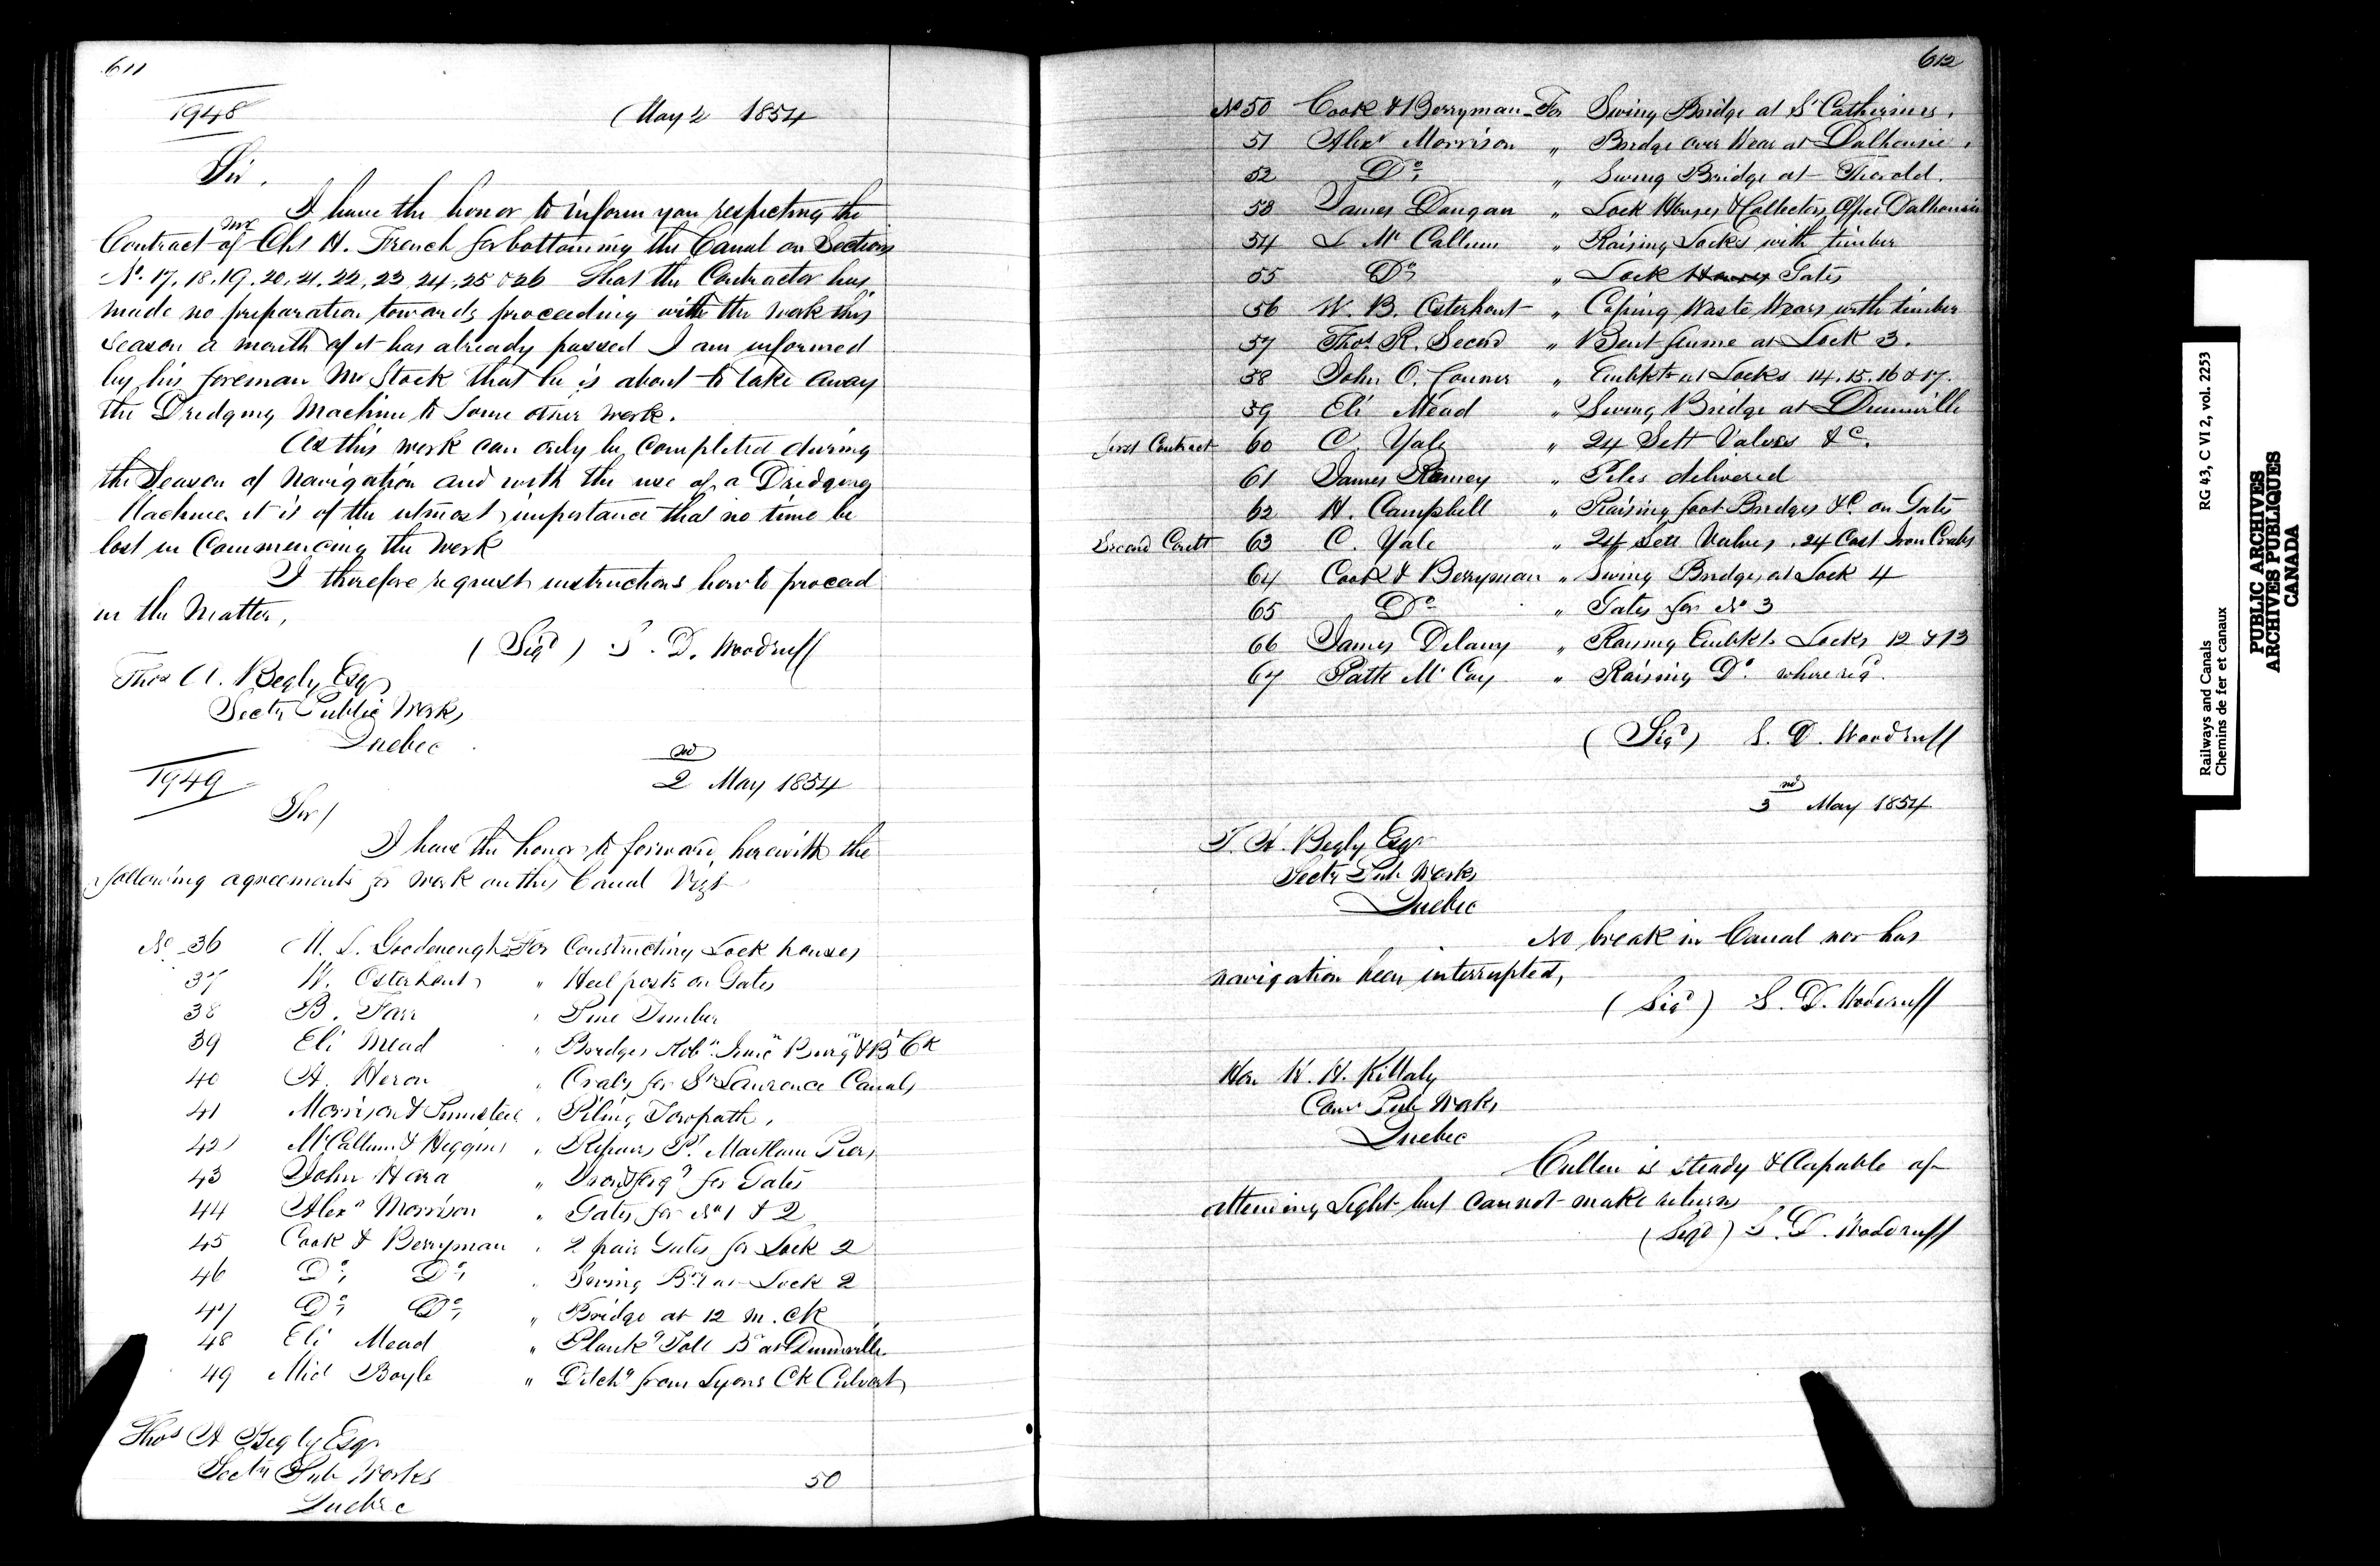 611
1948
May 2 1854
Sir,
I have the honor to inform you respecting the
Contract of Mr Chs H. French for bottoming the Canal on Sections
No. 17, 18, 19, 20, 21, 22, 23, 24, 25 & 26 That the Contractor has
made no preparation towards proceeding with the work this
Season a month of it has already passed I am informed
by his foreman Mr Stock that he is about to take away
the Dredging Machine to some other work.
As this work can only be completed during
the Season of Navigation and with the use of a Dredging
Machine, it is of the utmost importance that no time be
lost in Commencing the Work
I therefore request instructions how to proceed
in the Matter,
(Sigd) S. D. Woodruff
Thos A. Begly Esqr
Secty Public Works
Quebec
1949
2nd May 1854
Sir/
I have the honor to forward herewith the
following agreements for work on this Canal Vizt
No 36 M. S. Goodenough For Constructing Lock houses
37 W. Osterhout " Heel posts on Gates
38 B. Farr " Pine Timber
39 Eli Mead " Bridges
40 A. Heron " Crabs for St Laurence Canals
41 Morrison & " Piling Towpath,
42 McCallum & Higgins " Repairs Pt Maitland Piers
43 John Hara " for Gates
44 Alexr Morrison " Gates for No 1 & 2
45 Cook & Berryman " 2 pair Gates for Lock 2
46 Do, Do, " Swing Brg at Lock 2
47 Do, Do, " Bridge at 12 m. Ck
48 Eli Mead " Plankg Toll Be at Dunnville
49 Micl Boyle " Ditchg from Lyons Ck Culvert
Thos A Begly Esqr
Secty Pub Works
Quebec
50
612
No 50 Cook & Berryman For Swing Bridge at St Catherines,
51 Alexr Morrison " Bridge over Wear at Dalhousie,
52 Do, " Swing Bridge at Thorold.
53 James Dougan " Lock Houses & Collectors Office Dalhousie
54 L McCallum " Raising Locks with timber
55 Do, " Lock Houses Gates
56 W. B. Osterhout " Coping Waste Wears with timber
57 Thos R. Secord " Bent flume at Lock 3.
58 John O. Conner " Embkts at Locks 14, 15, 16 & 17.
59 Eli Mead " Swing Bridge at Dunnville
first Contract 60 C. Yale " 24 Sett Valves &c.
61 James Ramey " Piles delivered
62 H. Campbell " Raising foot Bridges &c on Gates
Second Contt 63 C. Yale " 24 Sett Valves, 24 Cast Iron Crabs
64 Cook & Berryman " Swing Bridge, at Lock 4
65 Do " Gates for No 3
66 James Delany " Raising Embkts Locks 12 & 13
67 Patk McCoy " Raising Do. where reqd.
(Sigd) S. D. Woodruff
3nd May 1854
T. A. Begly Esqr
Secty Pub Works
Quebec
No break in Canal nor has
navigation been interrupted,
(Sigd) S. D. Woodruff
Hon H. H. Killaly
Comr Pub Works
Quebec
Cullen is steady & Capable of
attending Light but cannot make returns
(Sigd) S. D. Woodruff
RG 43, C VI 2, vol. 2253
Railways and Canals
Chemins de fer et canaux
PUBLIC ARCHIVES
ARCHIVES PUBLIQUES
CANADA